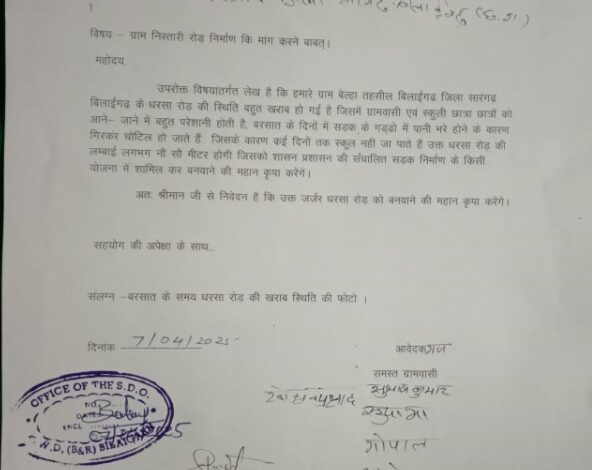 ।
विषय – ग्राम निस्तारी रोड निर्माण कि मांग करने बाबत्।
महोदय,
उपरोक्त विषयांतर्गत लेख है कि हमारे ग्राम बेल्हा तहसील बिलाईगढ़ जिला सारंगढ़
बिलाईगढ़ के धरसा रोड की स्थिति बहुत खराब हो गई है जिसमें ग्रामवासी एवं स्कुली छात्रा छात्रों को
आने– जाने में बहुत परेशानी होती है, बरसात के दिनों में सडक के गड्ढों में पानी भरे होने के कारण
गिरकर चोटिल हो जाते हैं जिसके कारण कई दिनों तक स्कूल नही जा पाते है उक्त धरसा रोड़ की
लम्बाई लगभग नौ सौ मीटर होगी जिसको शासन प्रशासन की संचालित सडक निर्माण के किसी
योजना में शामिल कर बनवाने की महान कृपा करेंगे।
अतः श्रीमान जी से निवेदन है कि उक्त जर्जर धरसा रोड़ को बनवाने की महान कृपा करेंगे।
सहयोग की अपेक्षा के साथ...
संलग्न –बरसात के समय धरसा रोड़ की खराब स्थिति की फोटो ।
दिनांक 7/04/2025
आवेदक
समस्त ग्रामवासी
सुभाष कुमार
गोपाल
OFFICE OF THE S.D.O.
NO.
DATE
ENCL
W.D. (B&R) BILAIGARH